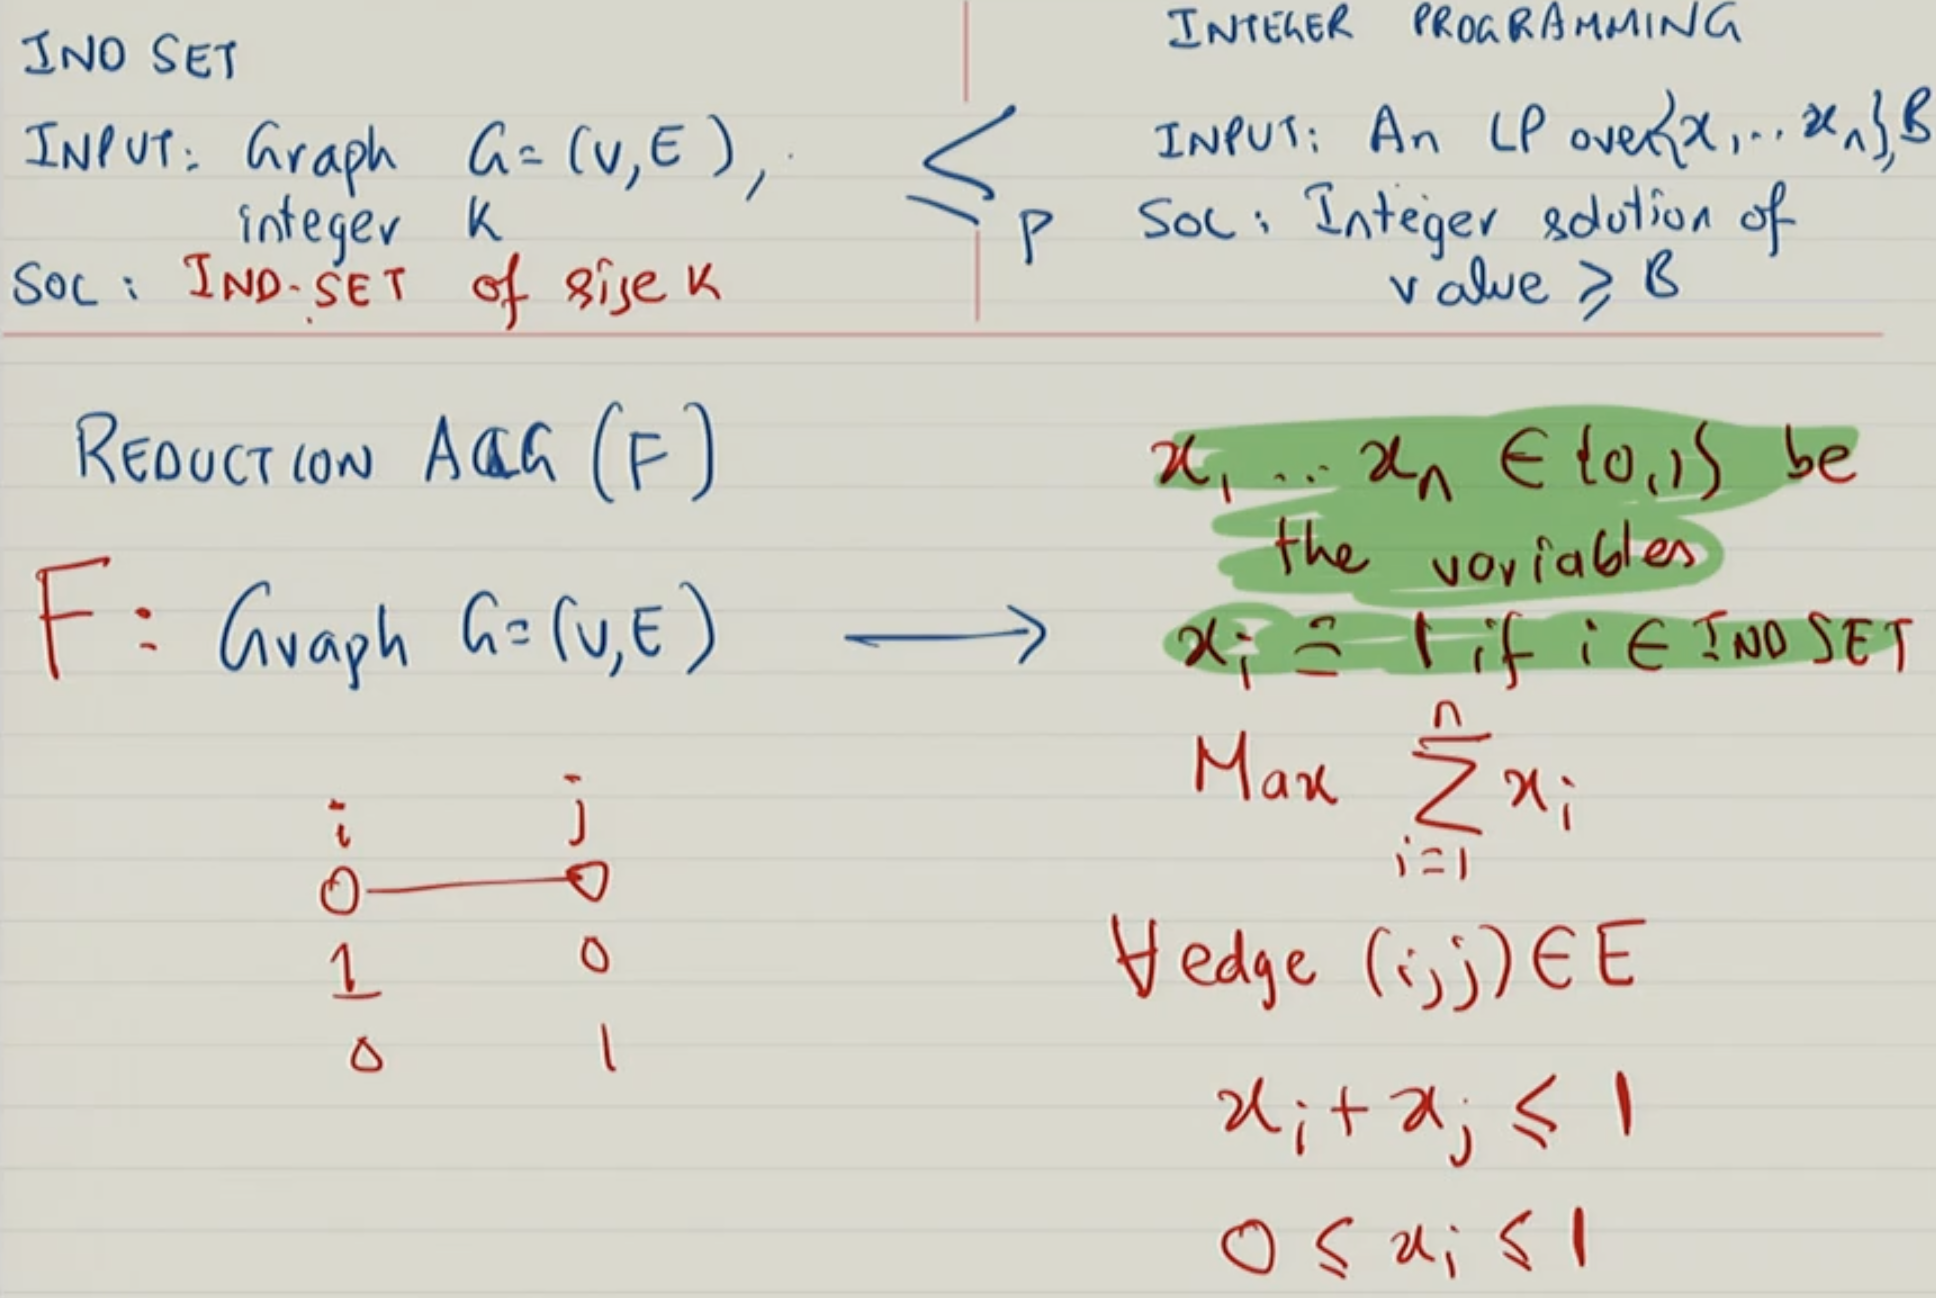 IND SET
INPUT: Graph G=(V,E),
integer K
SOL: IND-SET of size K
≤p
INTEGER PROGRAMMING
INPUT: An LP over {x1...xn}, B
SOL: Integer solution of
value ≥ B
REDUCTION ALG (F)
F: Graph G=(V,E) →
i j
1 0
0 1
x1...xn ∈ {0,1} be
the variables
xi = 1 if i ∈ IND SET
Max Σ xi
n
i=1
∀ edge (i,j) ∈ E
xi + xj ≤ 1
0 ≤ xi ≤ 1